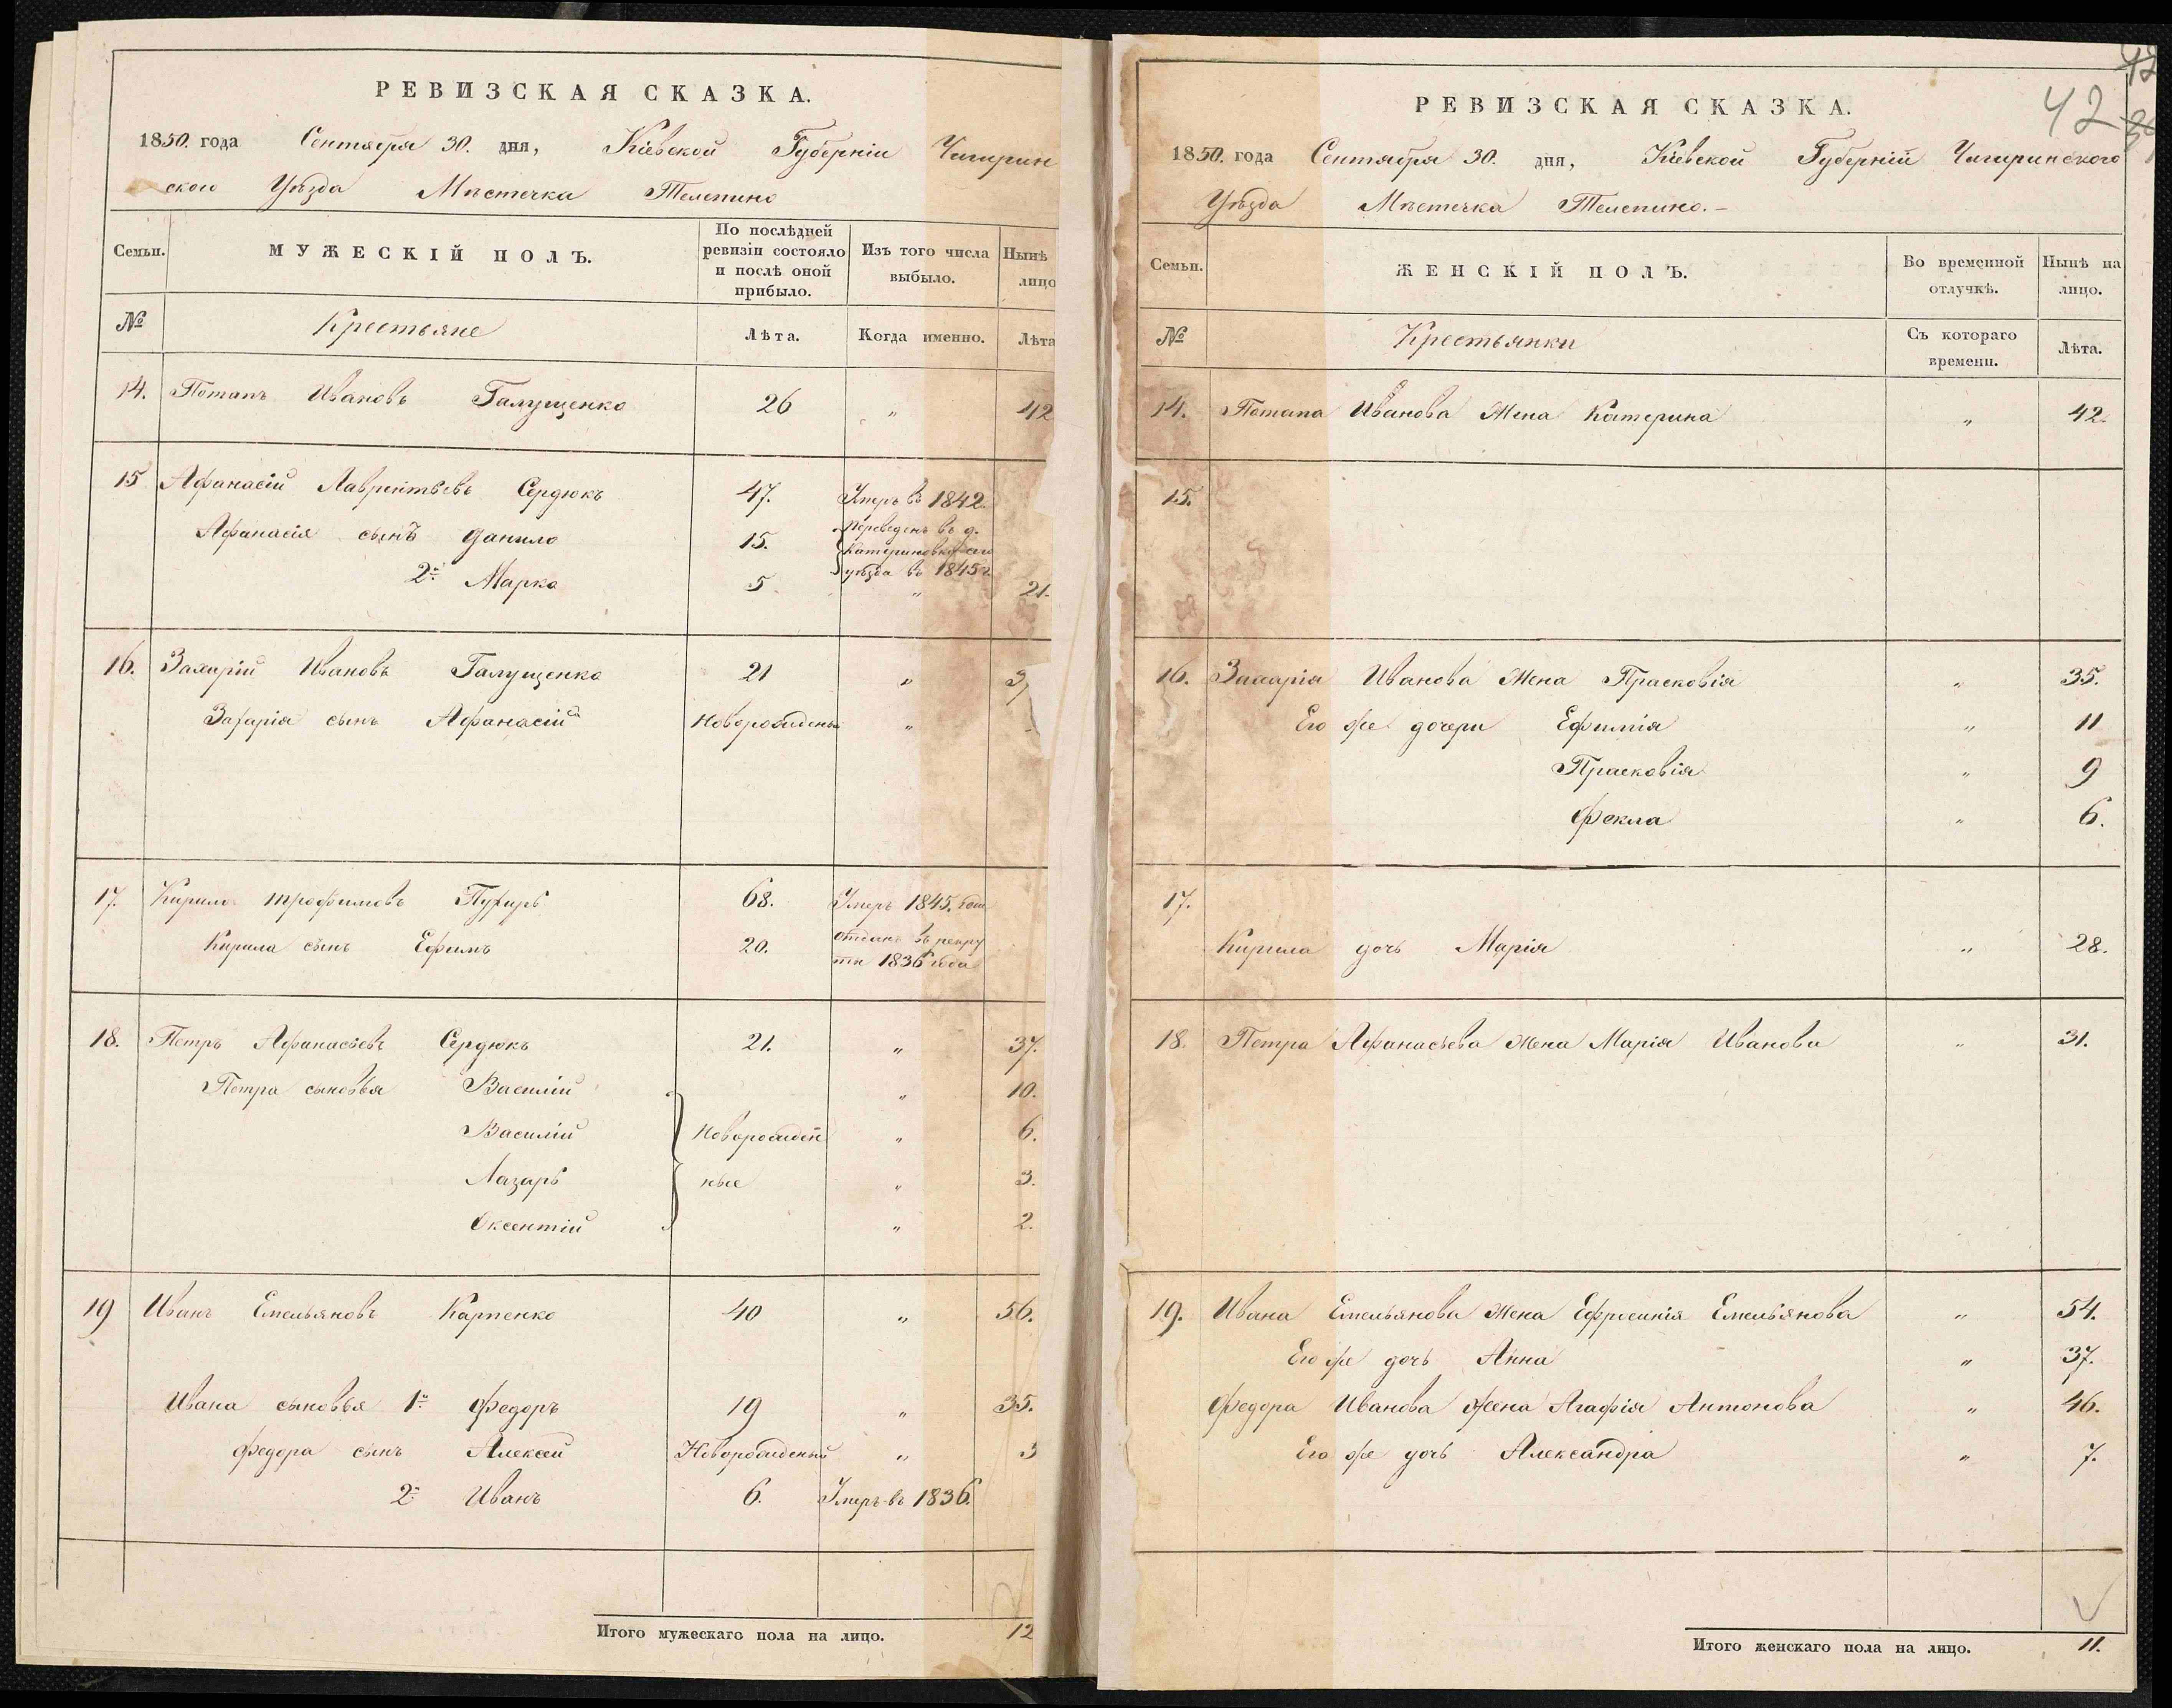 РЕВИЗСКАЯ СКАЗКА.
1850. года Сентября 30. дня, Кіевской Губерніи Чигирин
ского Уѣзда Мѣстечка Телепино
Семьи.
МУЖЕСКІЙ ПОЛЪ.
По послѣдней ревизіи состояло и послѣ оной прибыло.
Изъ того числа выбыло.
Нынѣ лицо
№ Крестьяне Лѣта. Когда именно. Лѣта
14. Потапъ Ивановъ Галущенко 26 „ 42
15 Афанасій Лаврентьевъ Сердюкъ 47. Умеръ въ 1842.
Афанасія сынъ Данило 15. Переведенъ въ д. Катериновку сего уѣзда въ 1845 г
2й Марко 5 „ 21.
16. Захарій Ивановъ Галущенко 21 „ 3
Захарія сынъ Афанасій Новорожденъ „
17. Кирило Трофимовъ Пухирь 68. Умеръ 1845.
Кирила сынъ Ефимъ 20. отданъ въ рекру
ты 1836 года
18. Петръ Афанасьевъ Сердюкъ 21. „ 37.
Петра сыновья Василій „ 10.
Василій Новорожден „ 6.
Лазарь ные „ 3.
Оксентій „ 2.
19 Иванъ Емельяновъ Карпенко 40 „ 56.
Ивана сыновья 1й Федоръ 19 „ 35.
Федора сынъ Алексей Новорожденый „ 3
2й Иванъ 6. Умеръ въ 1836.
Итого мужескаго пола на лицо. 12
42
РЕВИЗСКАЯ СКАЗКА.
1850. года Сентября 30. дня, Кіевской Губерній Чигиринского
Уѣзда Мѣстечка Телепино.–
Семьи.
ЖЕНСКІЙ ПОЛЪ.
Во временной отлучкѣ.
Нынѣ на лицо.
№ Крестьянки Съ котораго времени. Лѣта.
14. Потапа Иванова Жена Катерина „ 42.
15.
16. Захарія Иванова Жена Прасковія „ 35.
Его же дочери Ефимія „ 11
Прасковія „ 9
Фекла „ 6.
17.
Кирила дочь Марія „ 28.
18. Петра Афанасьева Жена Марія Иванова „ 31.
19. Ивана Емельянова Жена Ефросинія Емельянова „ 54.
Его же дочь Анна „ 37.
Федора Иванова Жена Агафія Антонова „ 46.
Его же дочь Александра „ 7.
Итого женскаго пола на лицо. 11.